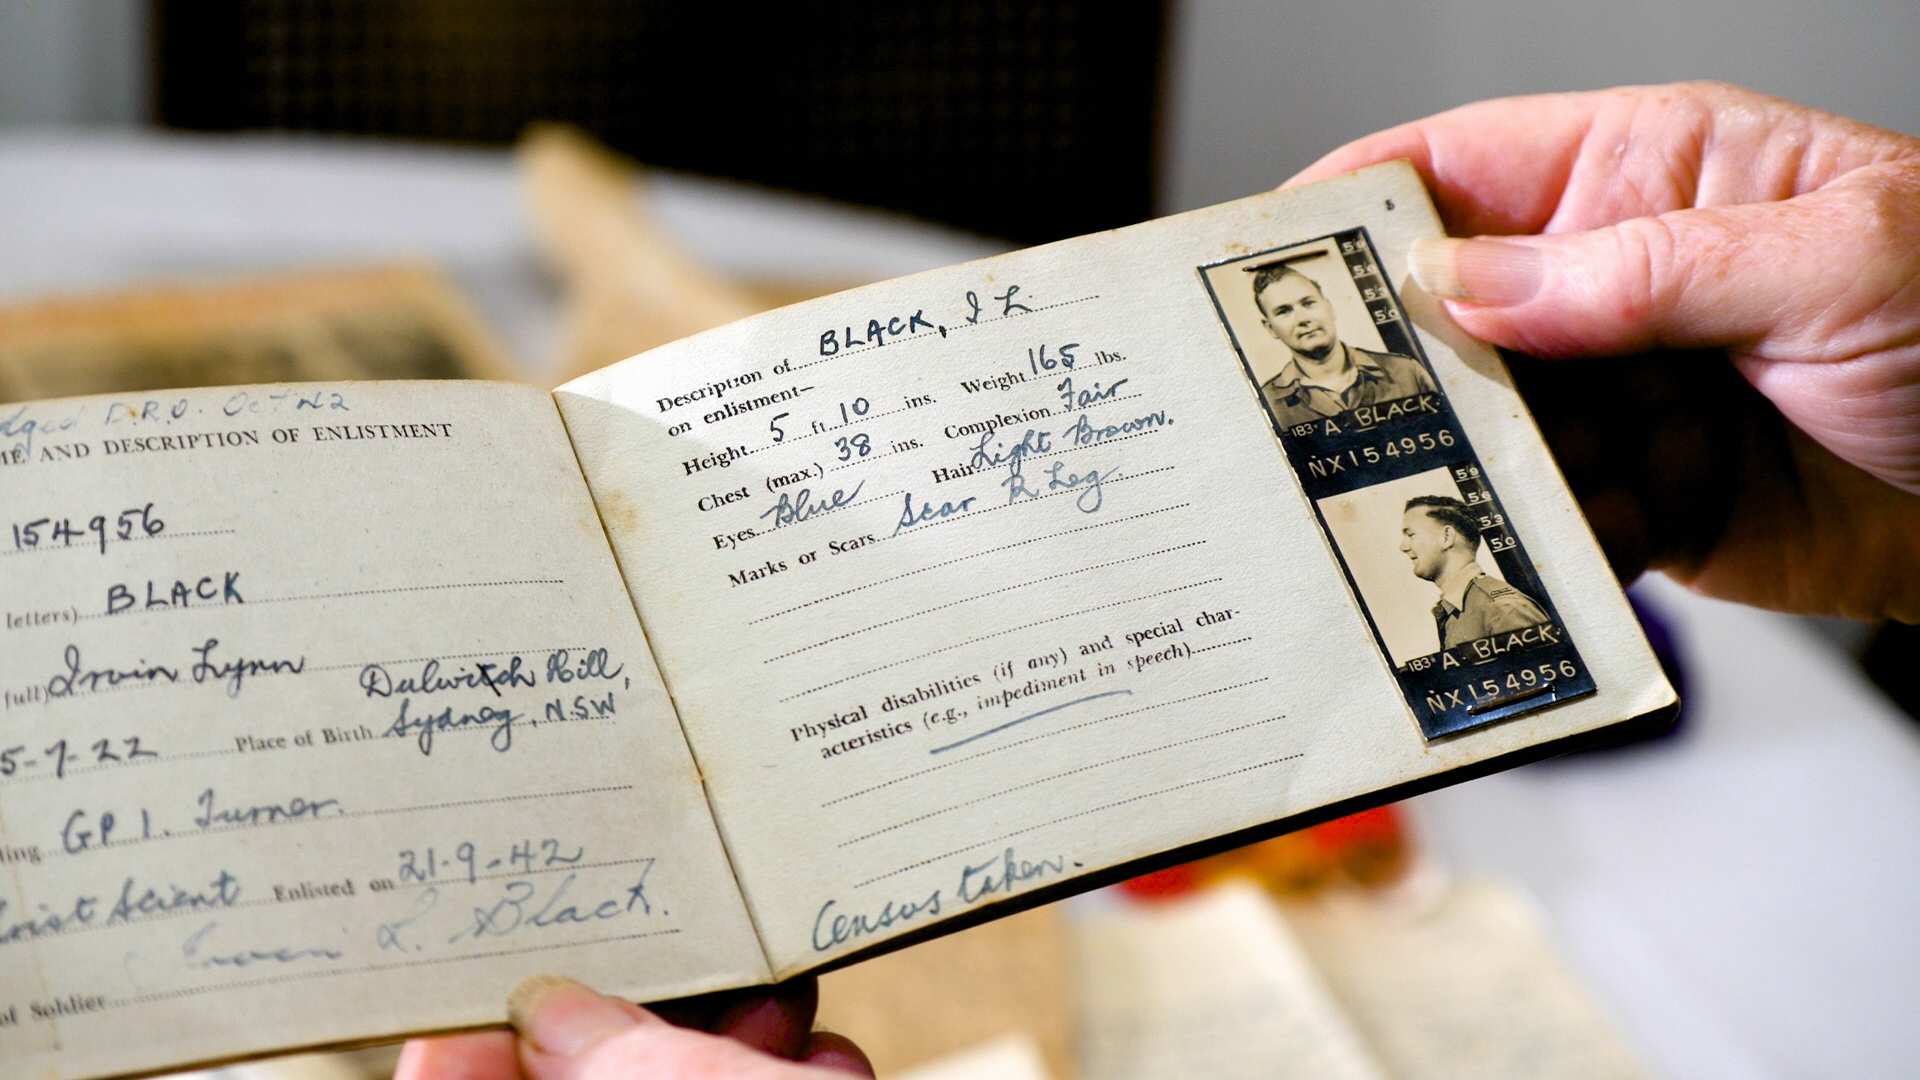 D.R.O. Oct N2
AND DESCRIPTION OF ENLISTMENT
154956
letters) BLACK
full) Irvin Lynn
5-7-22 Place of Birth Dulwitch Hill,
Sydney, N.S.W
GP 1. Turner.
Scient Enlisted on 21-9-42
L. Black.
of Soldier
5
Description of BLACK, I L.
on enlistment—
Height 5 ft. 10 ins. Weight 165 lbs.
Chest (max.) 38 ins. Complexion Fair
Eyes Blue Hair Light Brown.
Marks or Scars Scar R Leg.
Physical disabilities (if any) and special char-
acteristics (e.g., impediment in speech)
Census taken.
59
56
53
50
183 A. BLACK.
NX154956
59
56
53
50
183 A. BLACK.
NX154956